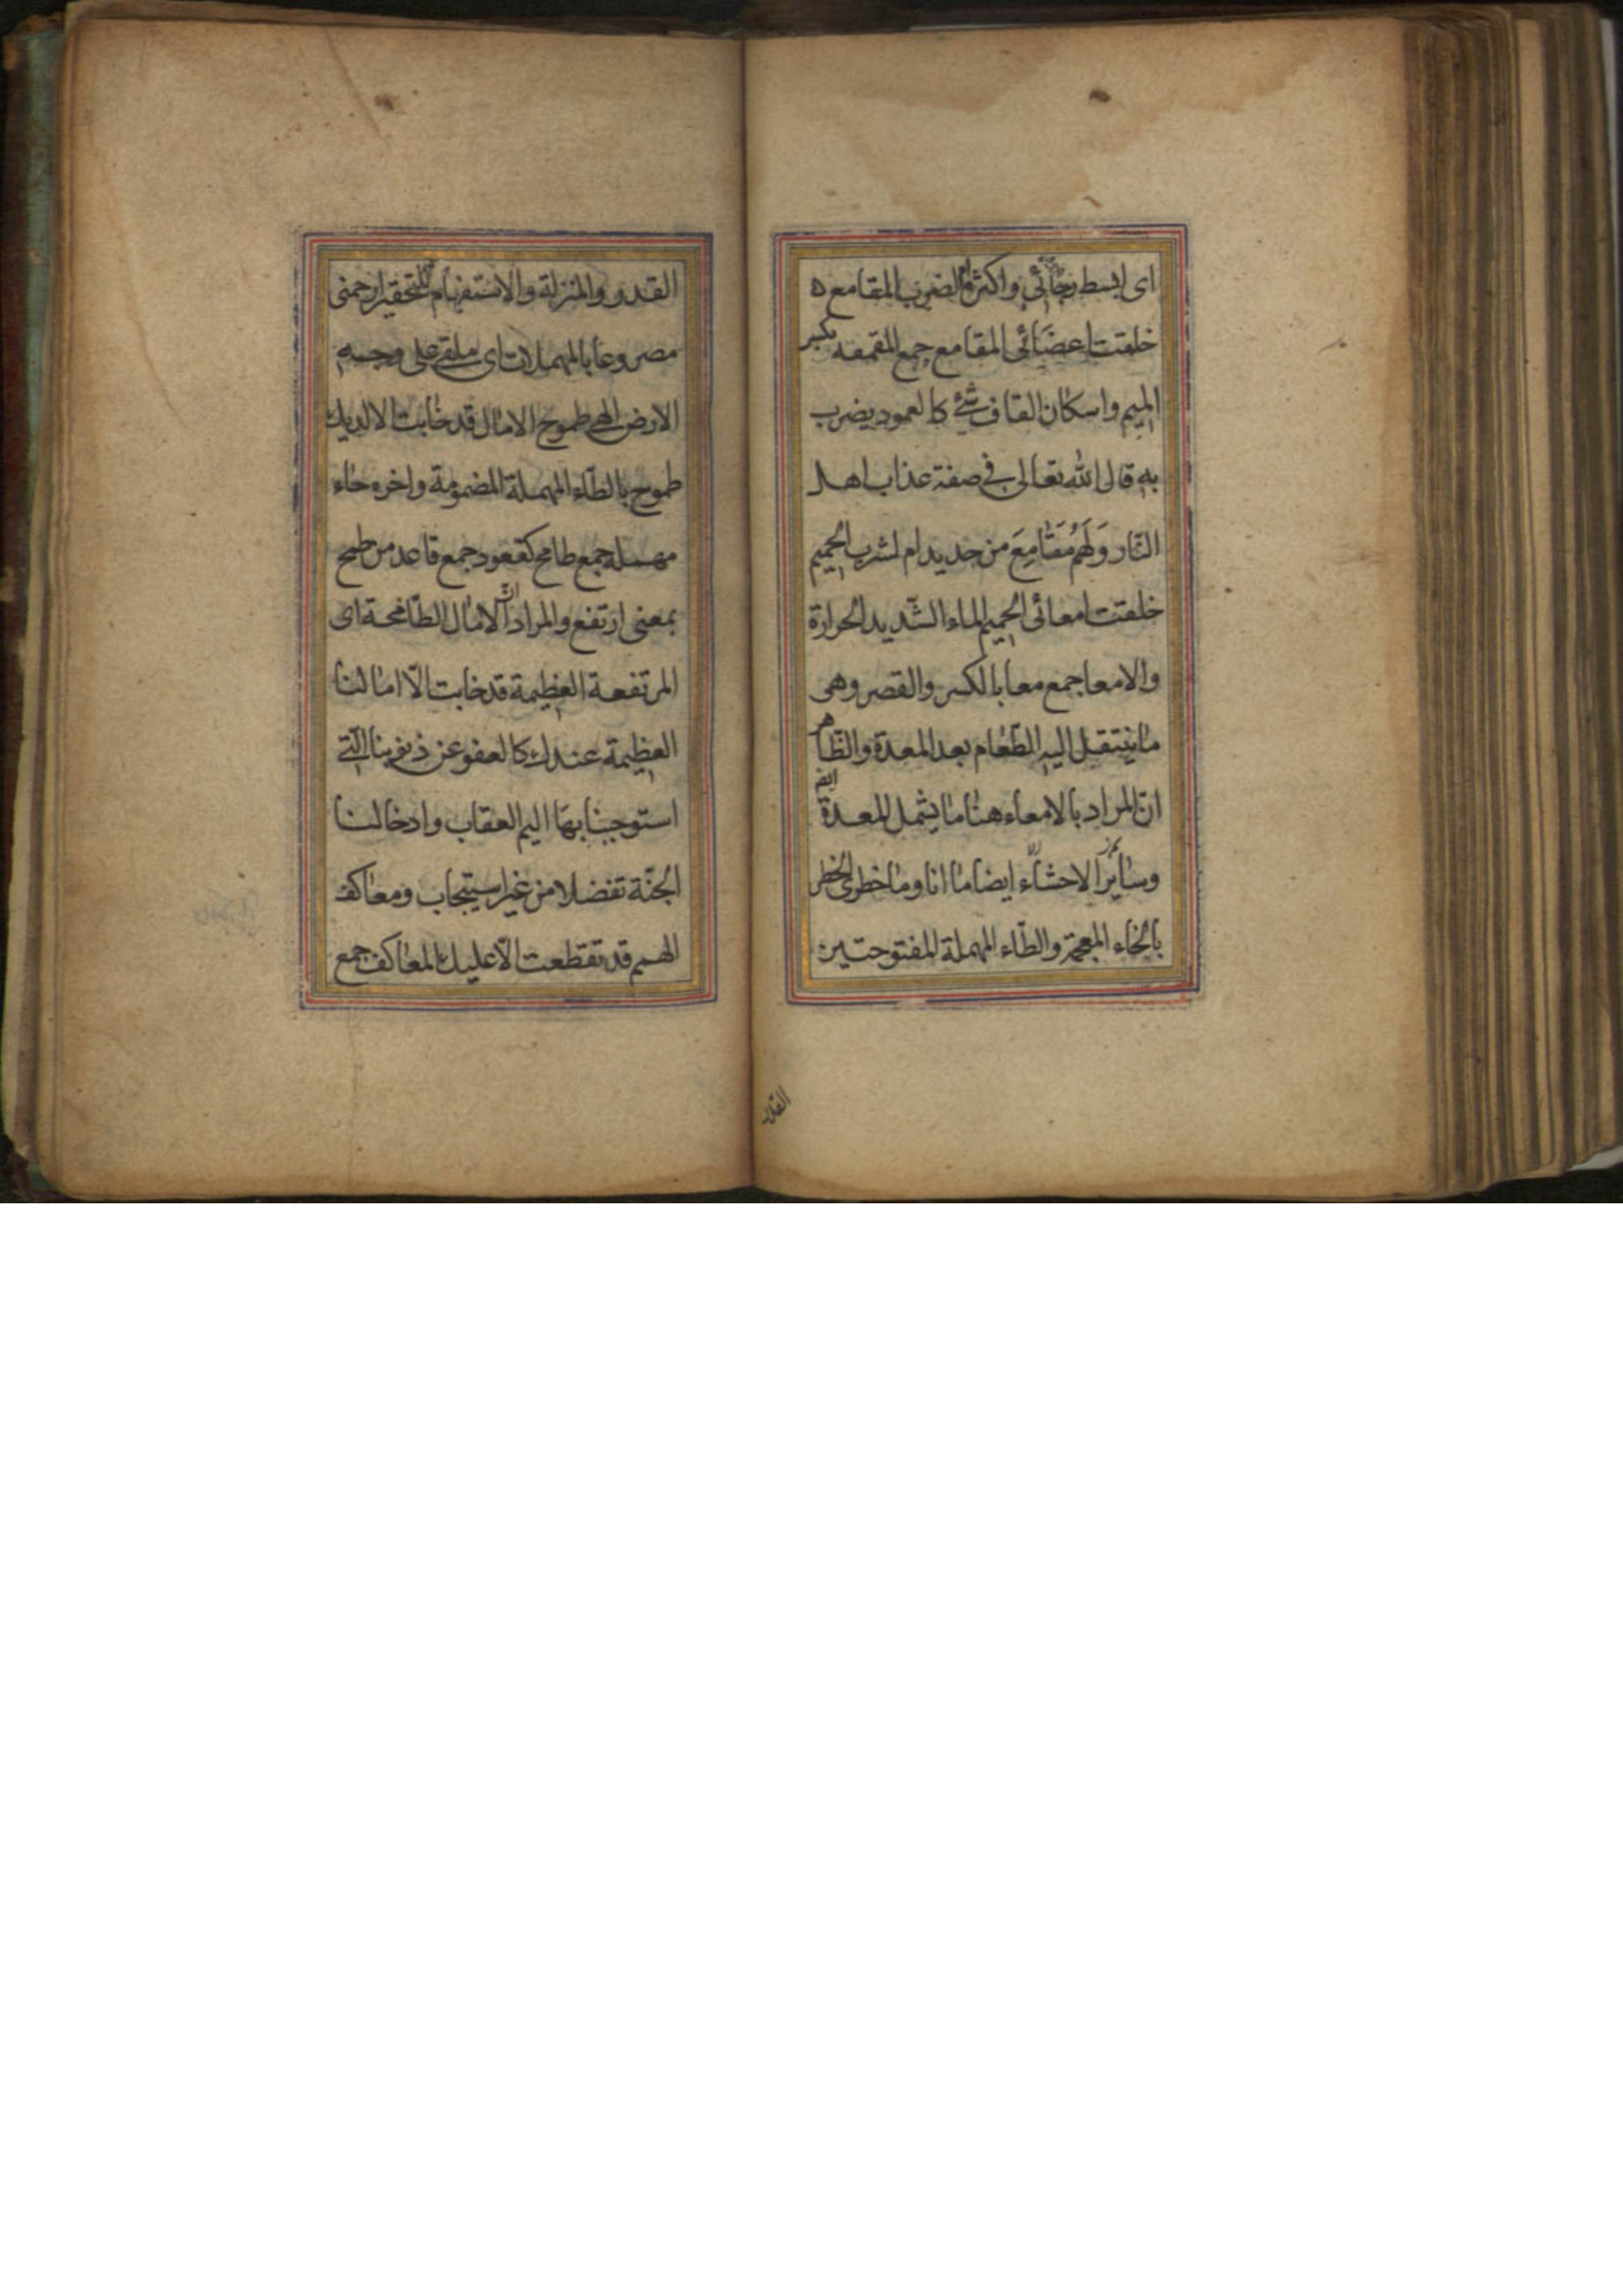 اى ابسط رجائى واكثره الضرب المقامع
خلقت اعضائى المقامع جمع المقمعه بكسر
الميم واسكان القاف شئ كالعمود يضرب
به قال الله تعالى فى صفة عذاب اهل
النّار وَلَهُم مَقَامِعَ من حديد ام لشرب الحميم
خلقت امعائى الحميم الماء الشّديد الحرارة
والامعا جمع معا بالكسر والقصر وهى
ما ينتقل اليه الطّعام بعد المعدة والظّاهر
انّ المراد بالامعاء هنا ما يشمل المعدة ايضا
وسائر الاحشاء ايضا ما انا وما خطرى الخطر
بالخاء المعجمة والطّاء المهملة المفتوحتين
القدر
القدر والمنزلة والاستفهام للتحقير ارحمنى
مصروعا بالمهملات اى ملقى على وجه
الارض الهى طموح الامال قد خابت الا لديك
طموح بالطّاء المهملة المضمومة واخره حاء
مهملة جمع طامح كقعود جمع قاعد من طمح
بمعنى ارتفع والمراد انّ الامال الطّامحة اى
المرتفعة العظيمة قد خابت الّا امالنا
العظيمة عندك كالعفو عن ذنوبنا الّتى
استوجبنا بها اليم العقاب وادخالنا
الجنّة تفضلا من غير استيجاب ومعاكف
الهمم قد تقطعت الّا عليك المعاكف جمع